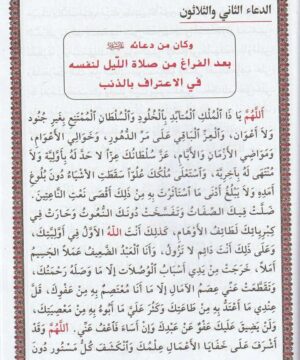 الدعاء الثاني والثلاثون
وكان من دعائه
بعد الفراغ من صلاة الليل لنفسه
في الاعتراف بالذنب
اَللّهُمَّ يَا ذَا الْمُلْكِ الْمُتَأَبِّدِ بِالْخُلُودِ وَالسُّلْطَانِ الْمُمْتَنِعِ بِغَيْرِ جُنُودٍ
وَلَا أَعْوَانٍ، وَالْعِزِّ الْبَاقِي عَلَى مَرِّ الدُّهُورِ، وَخَوَالِي الْأَعْوَامِ،
وَمَوَاضِي الْأَزْمَانِ وَالْأَيَّامِ، عَزَّ سُلْطَانُكَ عِزّاً لَا حَدَّ لَهُ بِأَوَّلِيَّةٍ وَلَا
مُنْتَهَى لَهُ بِآخِرِيَّةٍ، وَاسْتَعْلَى مُلْكُكَ عُلُوّاً سَقَطَتِ الْأَشْيَاءُ دُونَ بُلُوغِ
أَمَدِهِ وَلَا يَبْلُغُ أَدْنَى مَا اسْتَأْثَرْتَ بِهِ مِنْ ذلِكَ أَقْصَى نَعْتِ النَّاعِتِينَ.
ضَلَّتْ فِيكَ الصِّفَاتُ وَتَفَسَّخَتْ دُونَكَ النُّعُوتُ وَحَارَتْ فِي
كِبْرِيَائِكَ لَطَائِفُ الْأَوْهَامِ، كَذلِكَ أَنْتَ اللهُ الْأَوَّلُ فِي أَوَّلِيَّتِكَ،
وَعَلَى ذلِكَ أَنْتَ دَائِمٌ لَا تَزُولُ، وَأَنَا الْعَبْدُ الضَّعِيفُ عَمَلاً الْجَسِيمُ
أَمَلاً، خَرَجَتْ مِنْ يَدِي أَسْبَابُ الْوُصُلَاتِ إِلَّا مَا وَصَلَهُ رَحْمَتُكَ،
وَتَقَطَّعَتْ عَنِّي عِصَمُ الْآمَالِ إِلَّا مَا أَنَا مُعْتَصِمٌ بِهِ مِنْ عَفْوِكَ، قَلَّ
عِنْدِي مَا أَعْتَدُّ بِهِ مِنْ طَاعَتِكَ وَكَثُرَ عَلَيَّ مَا أَبُوءُ بِهِ مِنْ مَعْصِيَتِكَ،
وَلَنْ يَضِيقَ عَلَيْكَ عَفْوٌ عَنْ عَبْدِكَ وَإِنْ أَسَاءَ فَاعْفُ عَنِّي. اَللّهُمَّ وَقَدْ
أَشْرَفَ عَلَى خَفَايَا الْأَعْمَالِ عِلْمُكَ وَانْكَشَفَ كُلُّ مَسْتُورٍ دُونَ